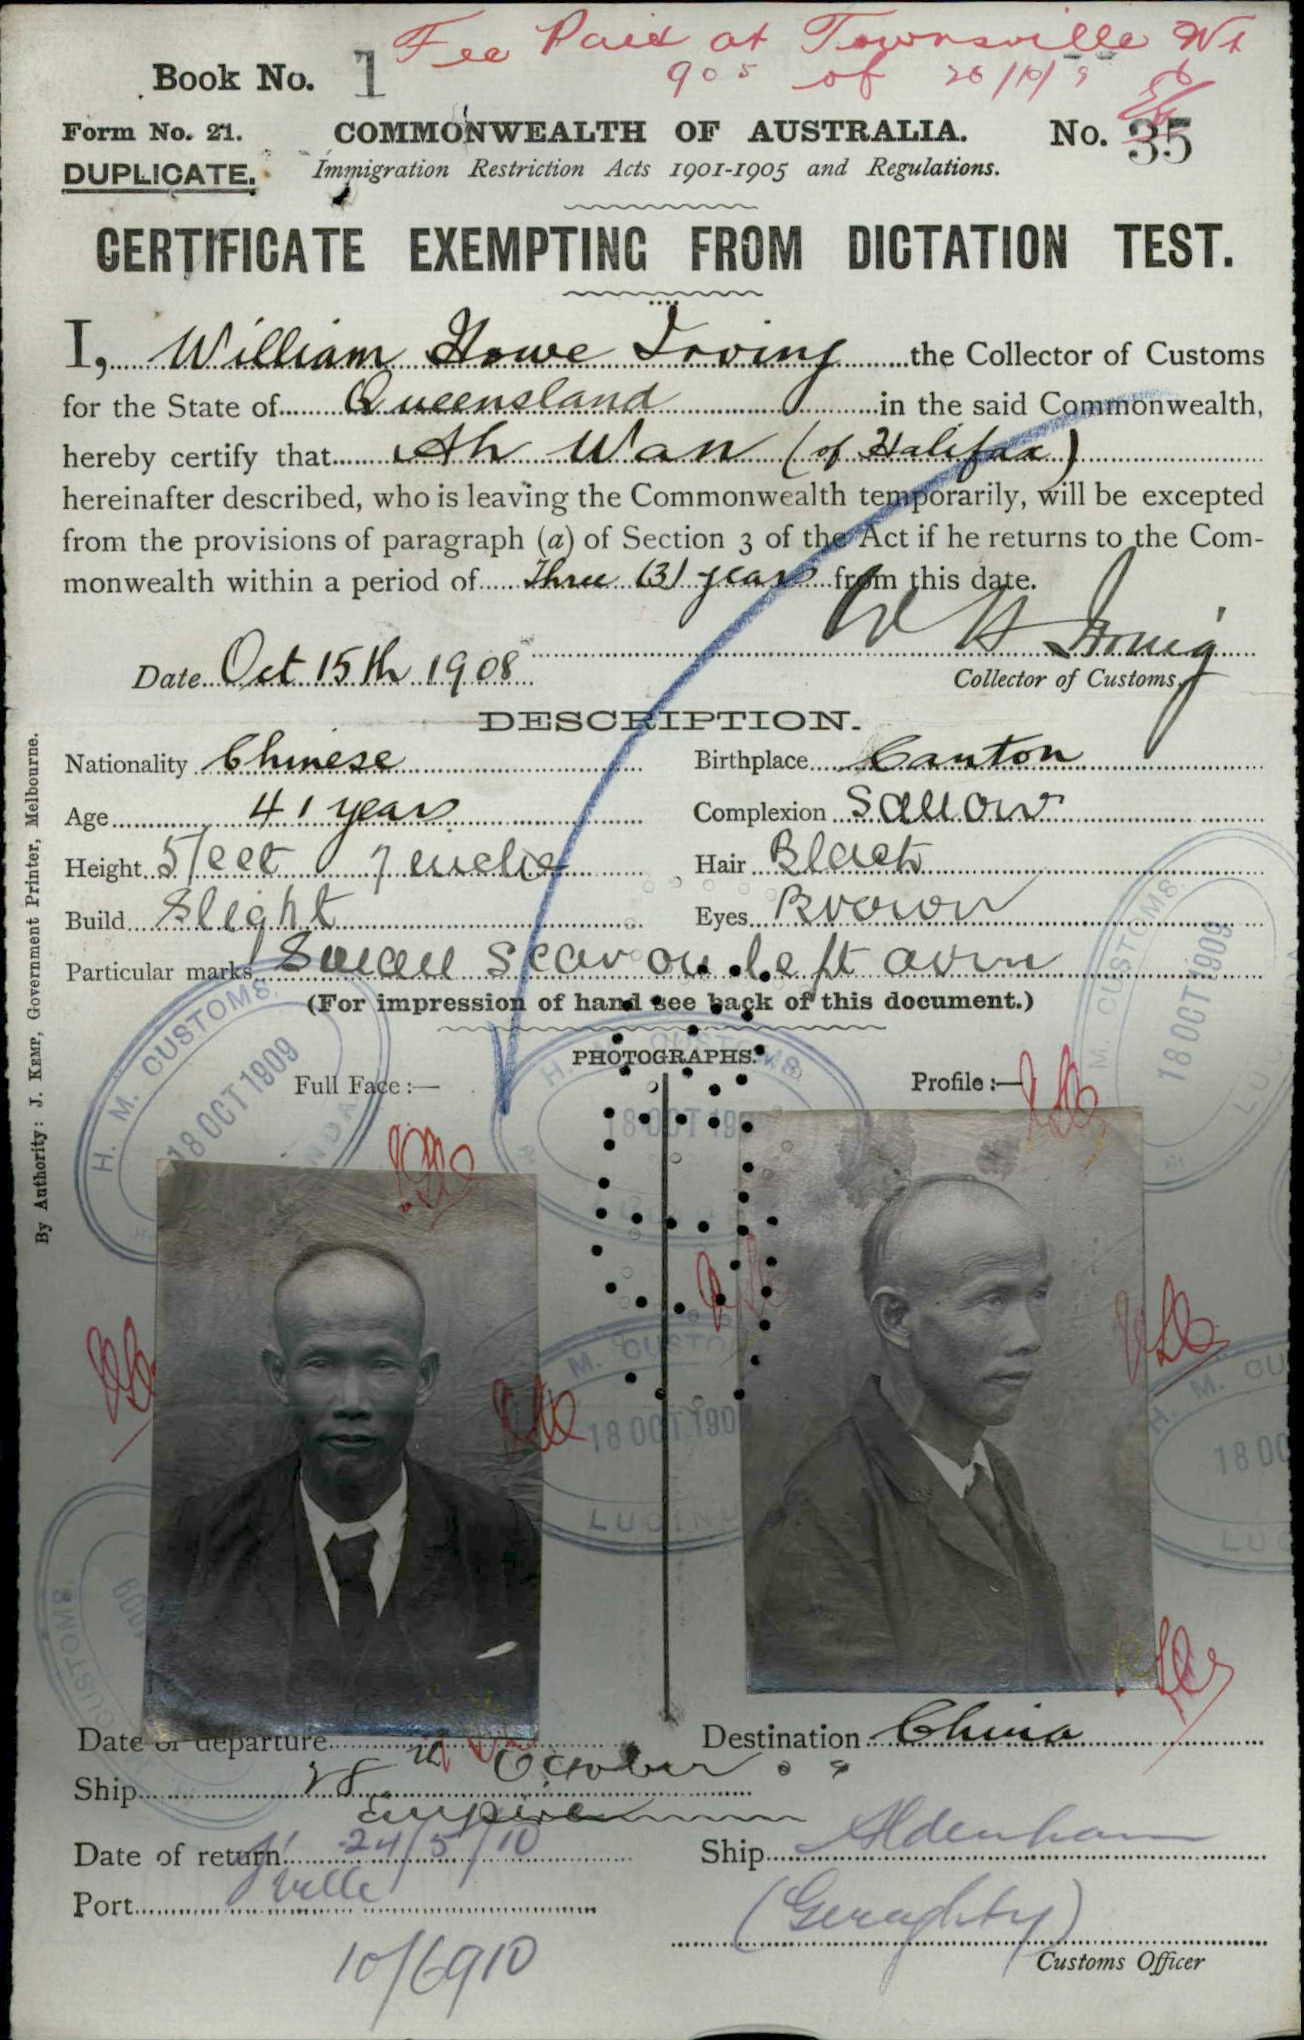 Fee Paid at Townsville
905 of 26/10/9
Book No. 1
Form No. 21.
COMMONWEALTH OF AUSTRALIA.
No. 35
DUPLICATE.
Immigration Restriction Acts 1901-1905 and Regulations.
CERTIFICATE EXEMPTING FROM DICTATION TEST.
I, William Howe Irving the Collector of Customs
for the State of Queensland in the said Commonwealth,
hereby certify that Ah Wan (of Halifax)
hereinafter described, who is leaving the Commonwealth temporarily, will be excepted
from the provisions of paragraph (a) of Section 3 of the Act if he returns to the Com-
monwealth within a period of Three (3) years from this date.
W H Irving
Date Oct 15th 1908
Collector of Customs.
DESCRIPTION.
Nationality Chinese
Birthplace Canton
Age 41 years
Complexion Sallow
Height 5 feet 7 inches
Hair Black
Build Slight
Eyes Brown
Particular marks Small scar on left arm
(For impression of hand see back of this document.)
PHOTOGRAPHS.
Full Face :—
Profile :—
H. M. CUSTOMS
18 OCT 1909
H. M. CUSTOMS
18 OCT 190
H. M. CUSTOMS
18 OCT 1909
M. CUSTO
18 OCT 190
LUCIN
H. M. CU
18 OC
LUC
CUSTOMS
1909
By Authority: J. KEMP, Government Printer, Melbourne.
Date of departure 28th October
Destination China
Ship Empire
Date of return 24/5/10
Ship Aldenham
Port T'ville
(Geraghty)
Customs Officer
10/6910